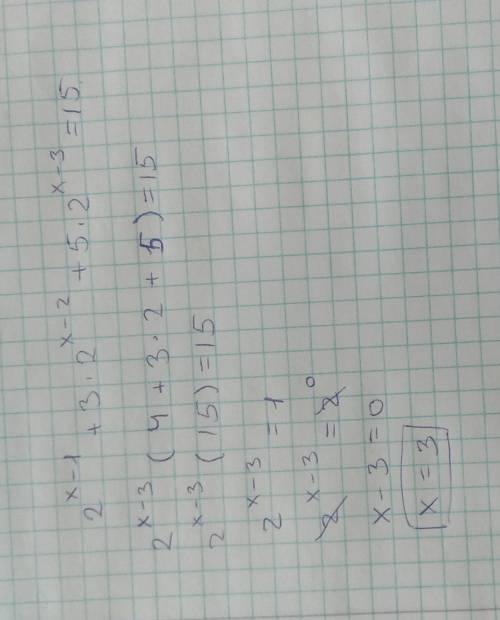 2^(x-1) + 3·2^(x-2) + 5·2^(x-3) = 15
2^(x-3) (4 + 3·2 + 5) = 15
2^(x-3) (15) = 15
2^(x-3) = 1
2^(x-3) = 2^0
x - 3 = 0
x = 3